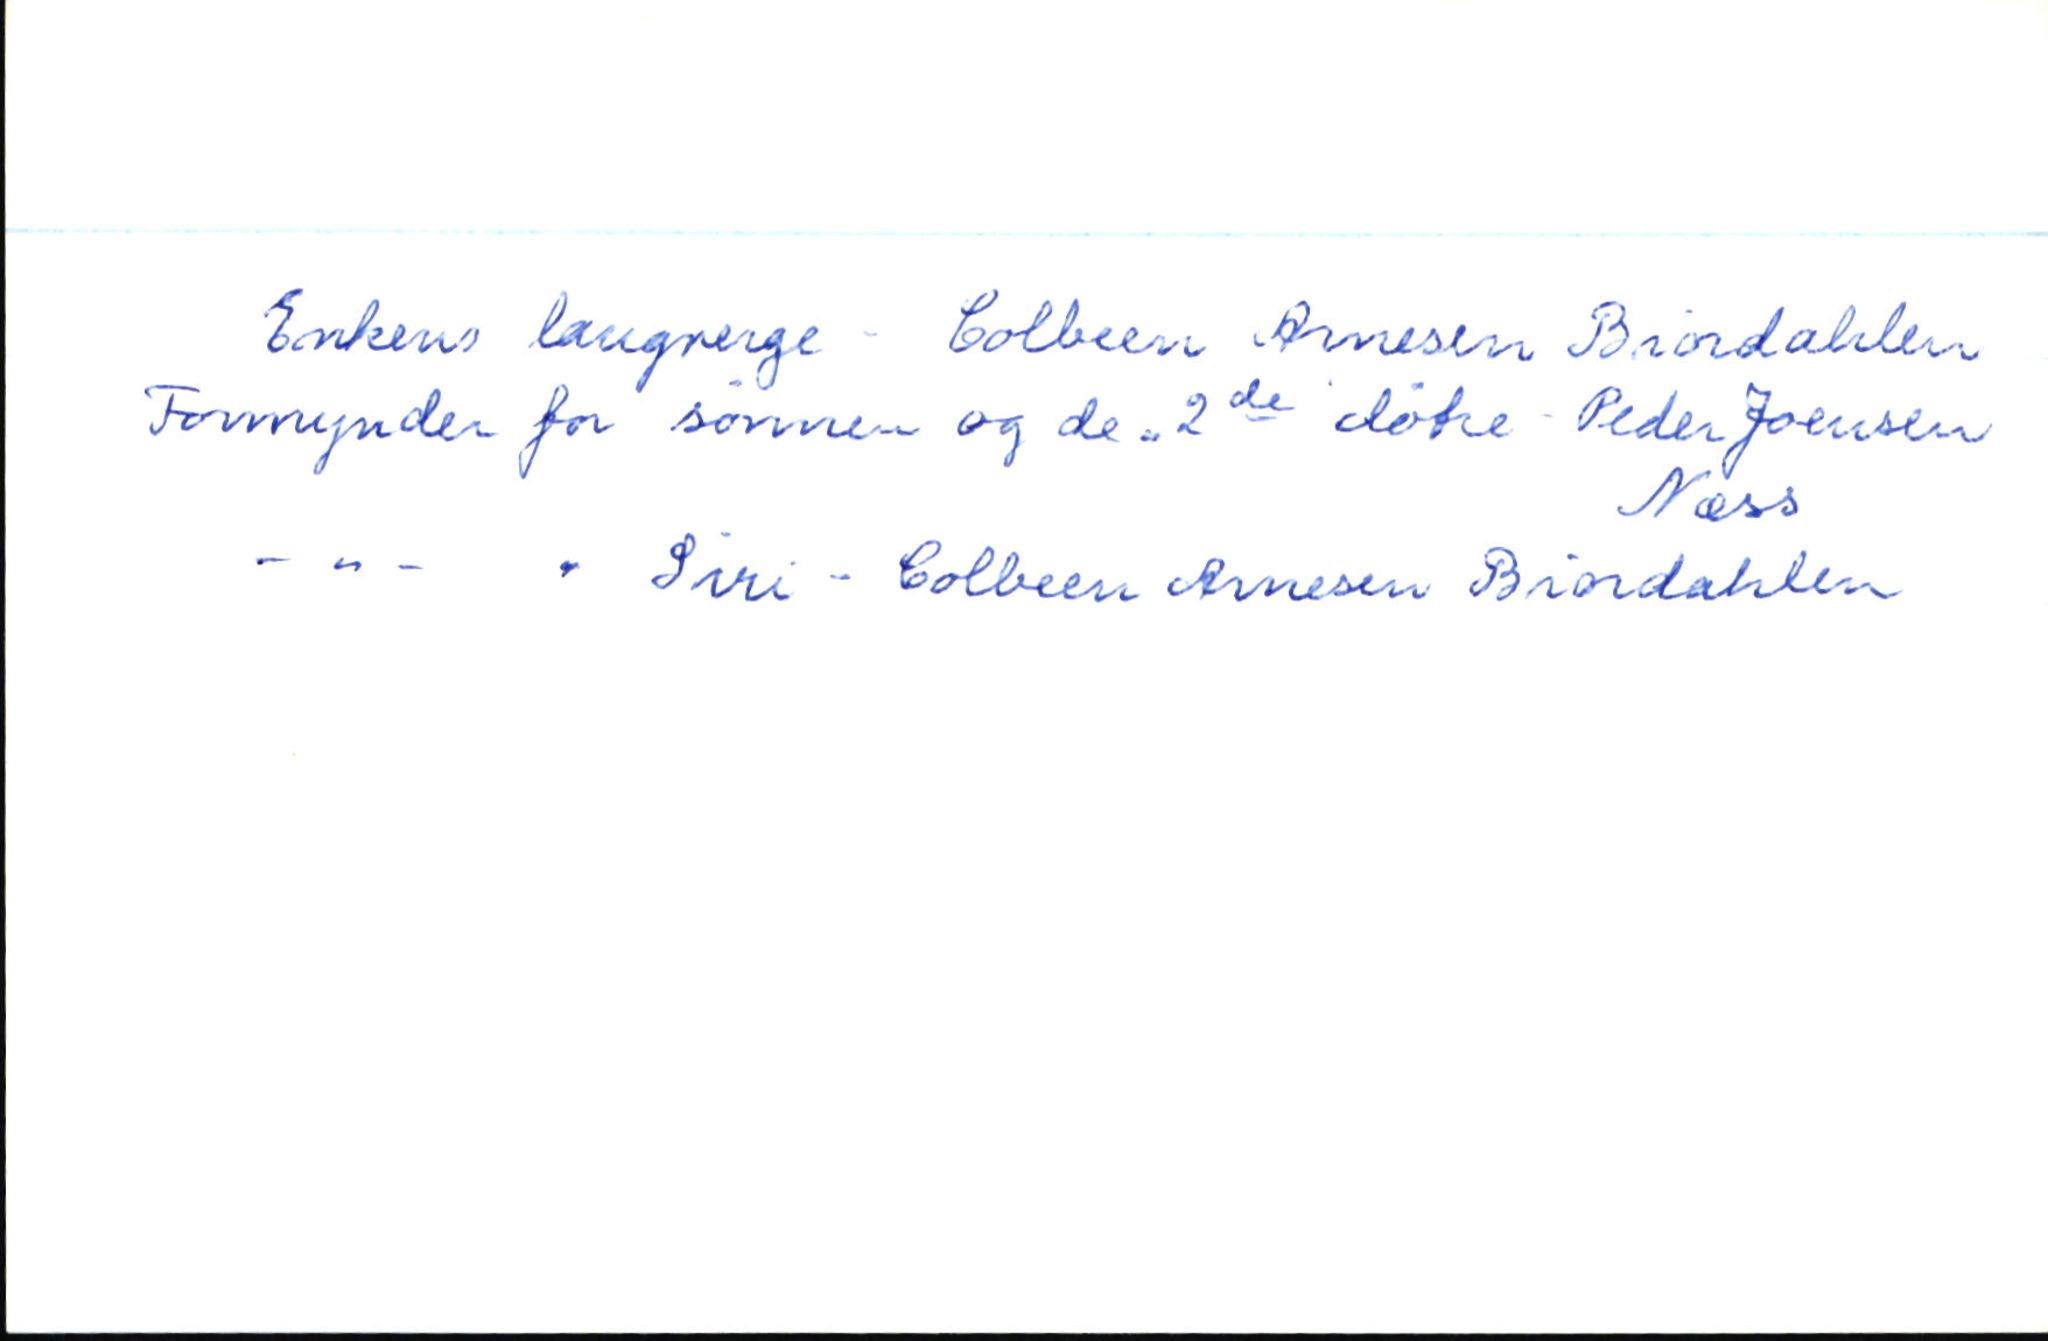 Enkens laugverge - Colbeen Arnesen Biordahlen
Formynder for sönnen og de „2de dötre - Peder Joensen
Næss
- „ - " Siri - Colbeen Arnesen Biordahlen